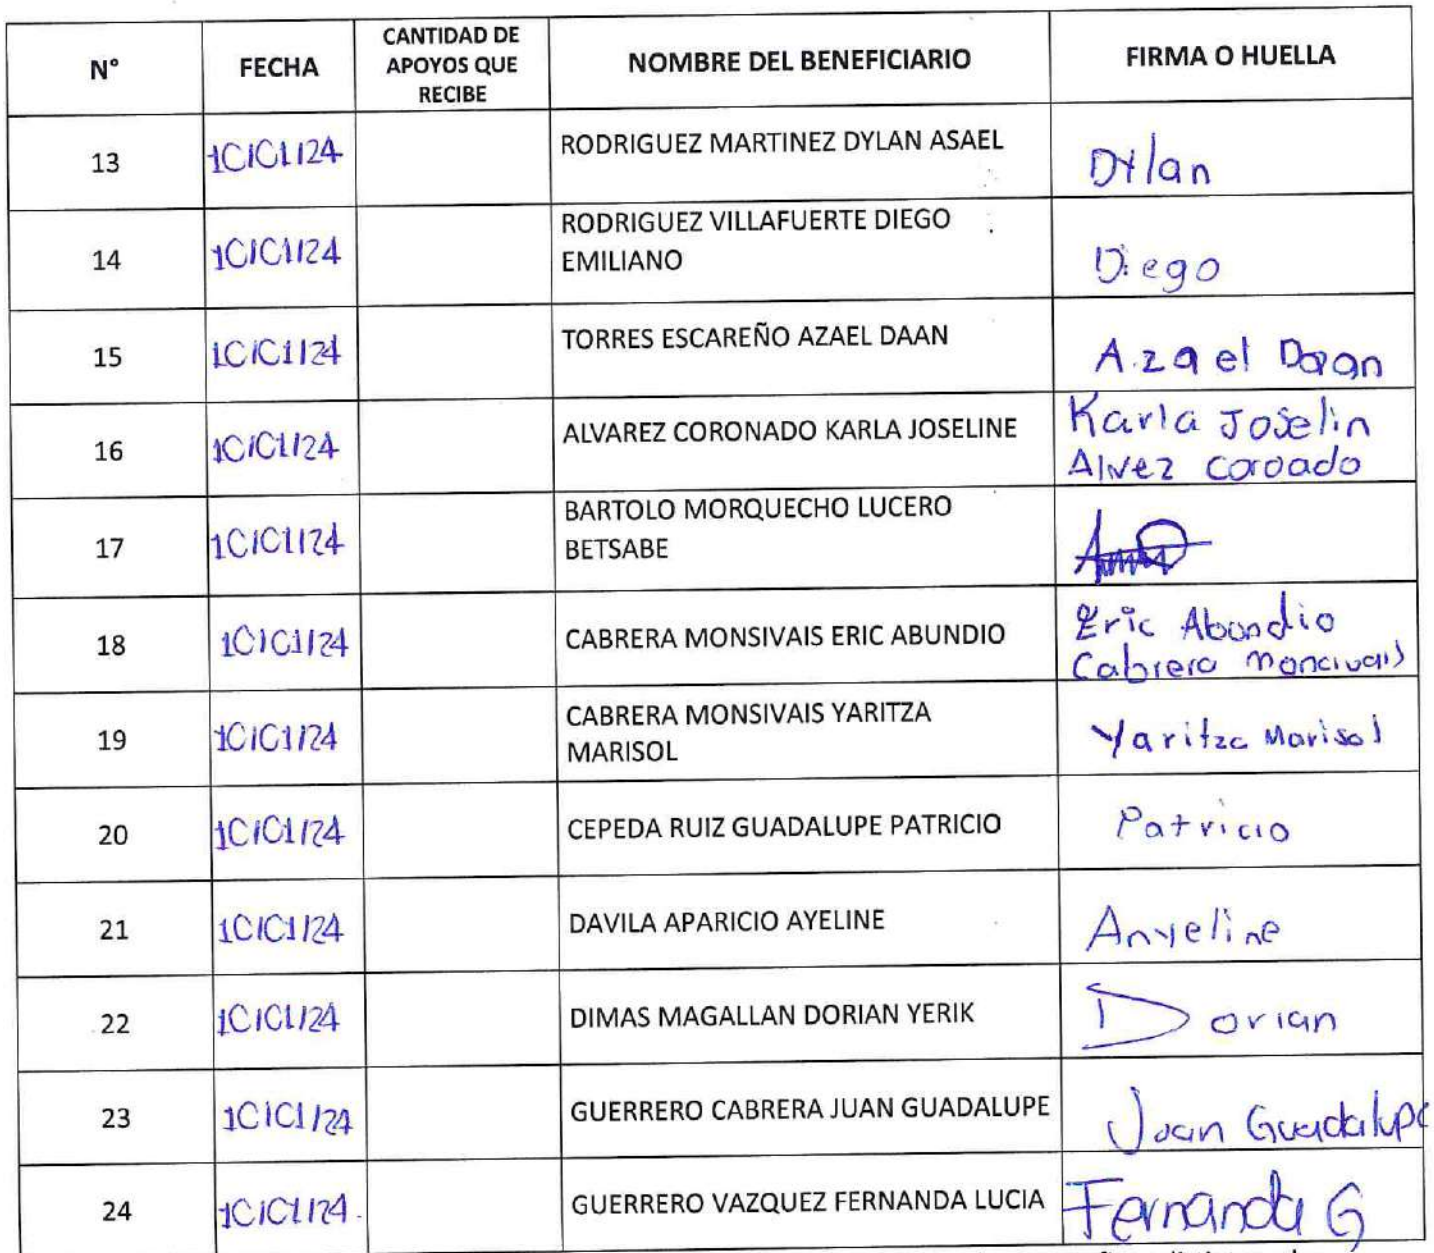 N° FECHA CANTIDAD DE APOYOS QUE RECIBE NOMBRE DEL BENEFICIARIO FIRMA O HUELLA
13 10/01/24 RODRIGUEZ MARTINEZ DYLAN ASAEL Dylan
14 10/01/24 RODRIGUEZ VILLAFUERTE DIEGO
EMILIANO Diego
15 10/01/24 TORRES ESCAREÑO AZAEL DAAN Azael Daan
16 10/01/24 ALVAREZ CORONADO KARLA JOSELINE Karla Joselin
Alvez coroado
17 10/01/24 BARTOLO MORQUECHO LUCERO
BETSABE
18 10/01/24 CABRERA MONSIVAIS ERIC ABUNDIO Eric Abundio
Cabrera moncivais
19 10/01/24 CABRERA MONSIVAIS YARITZA
MARISOL Yaritza Marisol
20 10/01/24 CEPEDA RUIZ GUADALUPE PATRICIO Patricio
21 10/01/24 DAVILA APARICIO AYELINE Anyeline
22 10/01/24 DIMAS MAGALLAN DORIAN YERIK Dorian
23 10/01/24 GUERRERO CABRERA JUAN GUADALUPE Juan Guadalupe
24 10/01/24 GUERRERO VAZQUEZ FERNANDA LUCIA Fernanda G